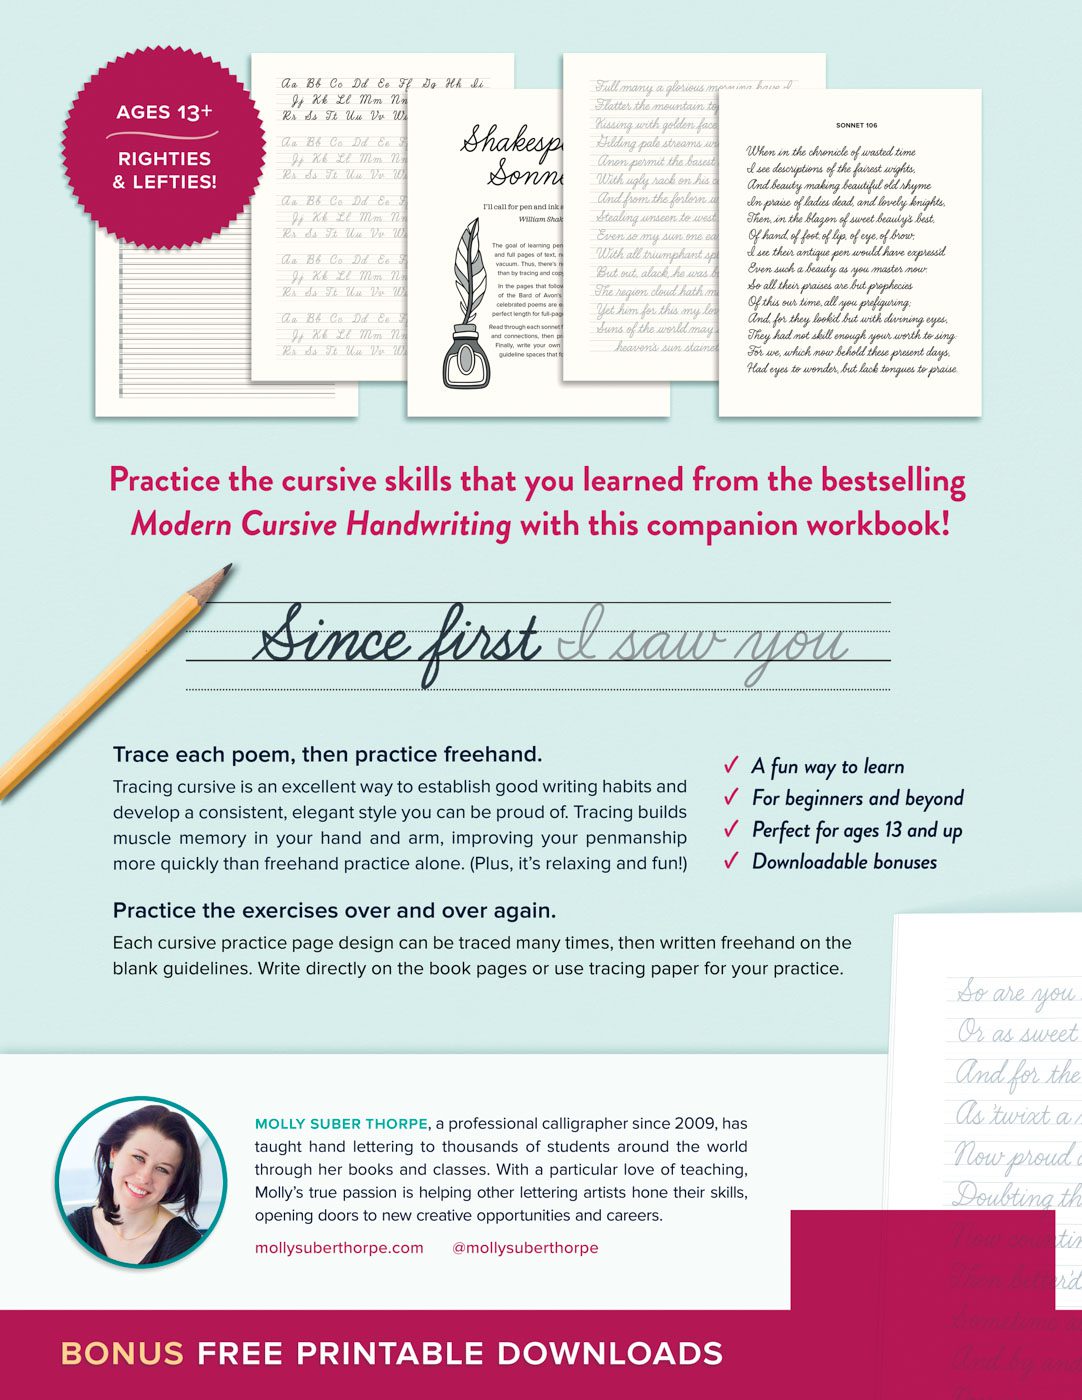 AGES 13+
RIGHTIES
& LEFTIES!
Aa Bb Cc Dd Ee Ff Gg Hh Ii
Jj Kk Ll Mm Nn
Rr Ss Tt Uu Vv
Aa Bb Cc Dd Ee
Jj Kk Ll Mm Nn
Rr Ss Tt Uu Vv
Aa Bb Cc Dd Ee
Jj Kk Ll Mm Nn
Rr Ss Tt Uu Vv
Aa Bb Cc Dd Ee
Jj Kk Ll Mm Nn
Rr Ss Tt Uu Vv
Aa Bb Cc Dd Ee
Jj Kk Ll Mm Nn
Rr Ss Tt Uu Vv
Shakesp
Sonne
I'll call for pen and ink
William Shak
The goal of learning pen
and full pages of text,
vacuum. Thus, there's
than by tracing and cop
In the pages that follow
of the Bard of Avon's
celebrated poems are
perfect length for full-pag
Read through each sonnet
and connections, then pr
Finally, write your own
guideline spaces that fo
Full many a glorious morning have I
Flatter the mountain top
Kissing with golden face
Gilding pale streams
Anon permit the basest
With ugly rack on his
And from the forlorn
Stealing unseen to west
Even so my sun one ea
With all triumphant spl
But out, alack, he was
The region cloud hath m
Yet him for this my lov
Suns of the world may
heaven's sun staineth
SONNET 106
When in the chronicle of wasted time
I see descriptions of the fairest wights,
And beauty making beautiful old rhyme
In praise of ladies dead, and lovely knights,
Then, in the blazon of sweet beauty's best,
Of hand, of foot, of lip, of eye, of brow;
I see their antique pen would have express'd
Even such a beauty as you master now.
So all their praises are but prophecies
Of this our time, all you prefiguring;
And, for they look'd but with divining eyes,
They had not skill enough your worth to sing:
For we, which now behold these present days,
Had eyes to wonder, but lack tongues to praise.
Practice the cursive skills that you learned from the bestselling
Modern Cursive Handwriting with this companion workbook!
Since first I saw you
Trace each poem, then practice freehand.
Tracing cursive is an excellent way to establish good writing habits and
develop a consistent, elegant style you can be proud of. Tracing builds
muscle memory in your hand and arm, improving your penmanship
more quickly than freehand practice alone. (Plus, it's relaxing and fun!)
✓ A fun way to learn
✓ For beginners and beyond
✓ Perfect for ages 13 and up
✓ Downloadable bonuses
Practice the exercises over and over again.
Each cursive practice page design can be traced many times, then written freehand on the
blank guidelines. Write directly on the book pages or use tracing paper for your practice.
So are you
Or as sweet
And for the
As 'twixt a
Now proud
Doubting th
Now countin
Then better'd
Sometime a
And by and
MOLLY SUBER THORPE, a professional calligrapher since 2009, has
taught hand lettering to thousands of students around the world
through her books and classes. With a particular love of teaching,
Molly's true passion is helping other lettering artists hone their skills,
opening doors to new creative opportunities and careers.
mollysuberthorpe.com @mollysuberthorpe
BONUS FREE PRINTABLE DOWNLOADS